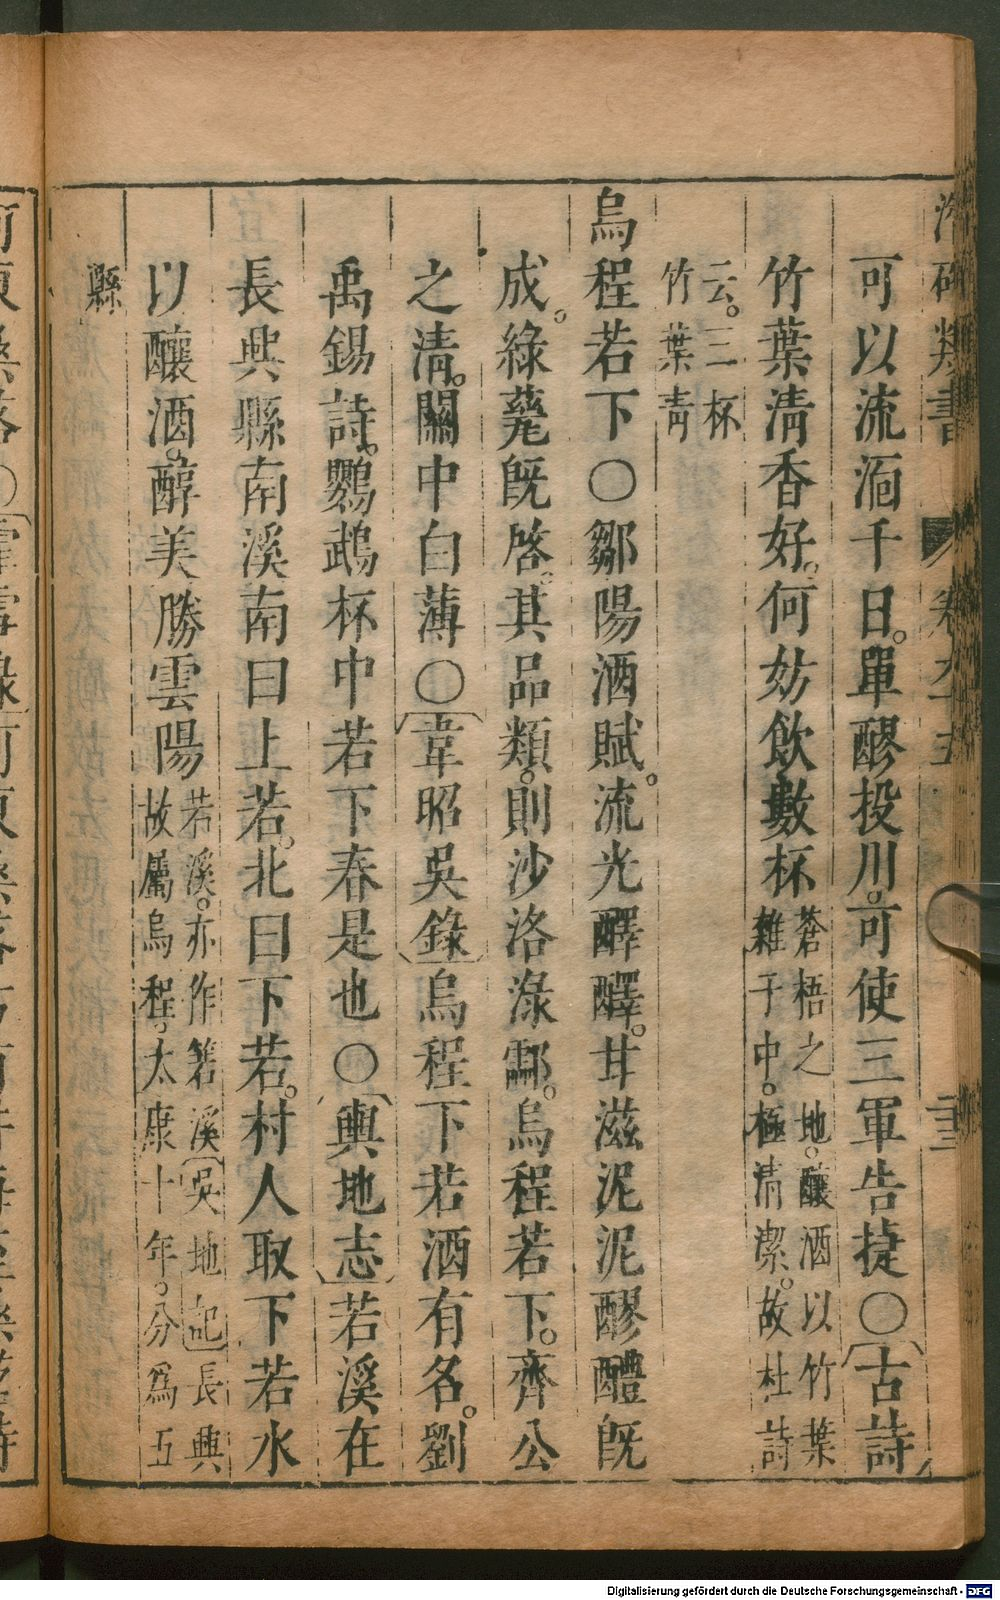 類書 卷
可以流湎千日。單醪投川。可使三軍告捷〇古詩
竹葉清香好。何妨飲數杯蒼梧之地。釀酒以竹葉
雜于中。極清潔。故杜詩
云。三杯
竹葉青
烏程若下〇鄒陽酒賦。流光醳醳。甘滋泥泥醪醴旣
成。綠甆旣啓。其品類。則沙洛淥酃。烏程若下。齊公
之清。關中白薄〇韋昭吳錄烏程下若酒有名。劉
禹錫詩。鸚鵡杯中若下春是也〇輿地志若溪在
長興縣南溪南曰上若。北曰下若。村人取下若水
以釀酒。醇美勝雲陽若溪。亦作箬溪吳地記長興
故屬烏程，太康十年。分爲五
縣
Digitalisierung gefördert durch die Deutsche Forschungsgemeinschaft - DFG